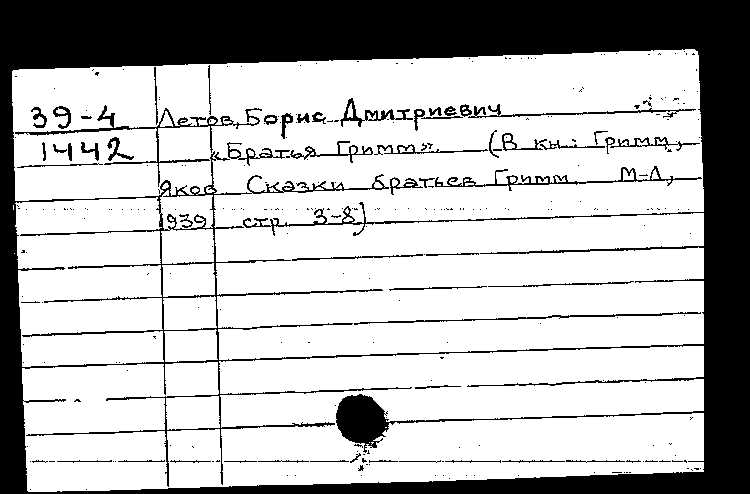 39-4 Летов, Борис Дмитриевич
1442 «Братья Гримм». (В кн.: Гримм,
Яков Сказки братьев Гримм. М-Л,
1939, стр. 3-8)